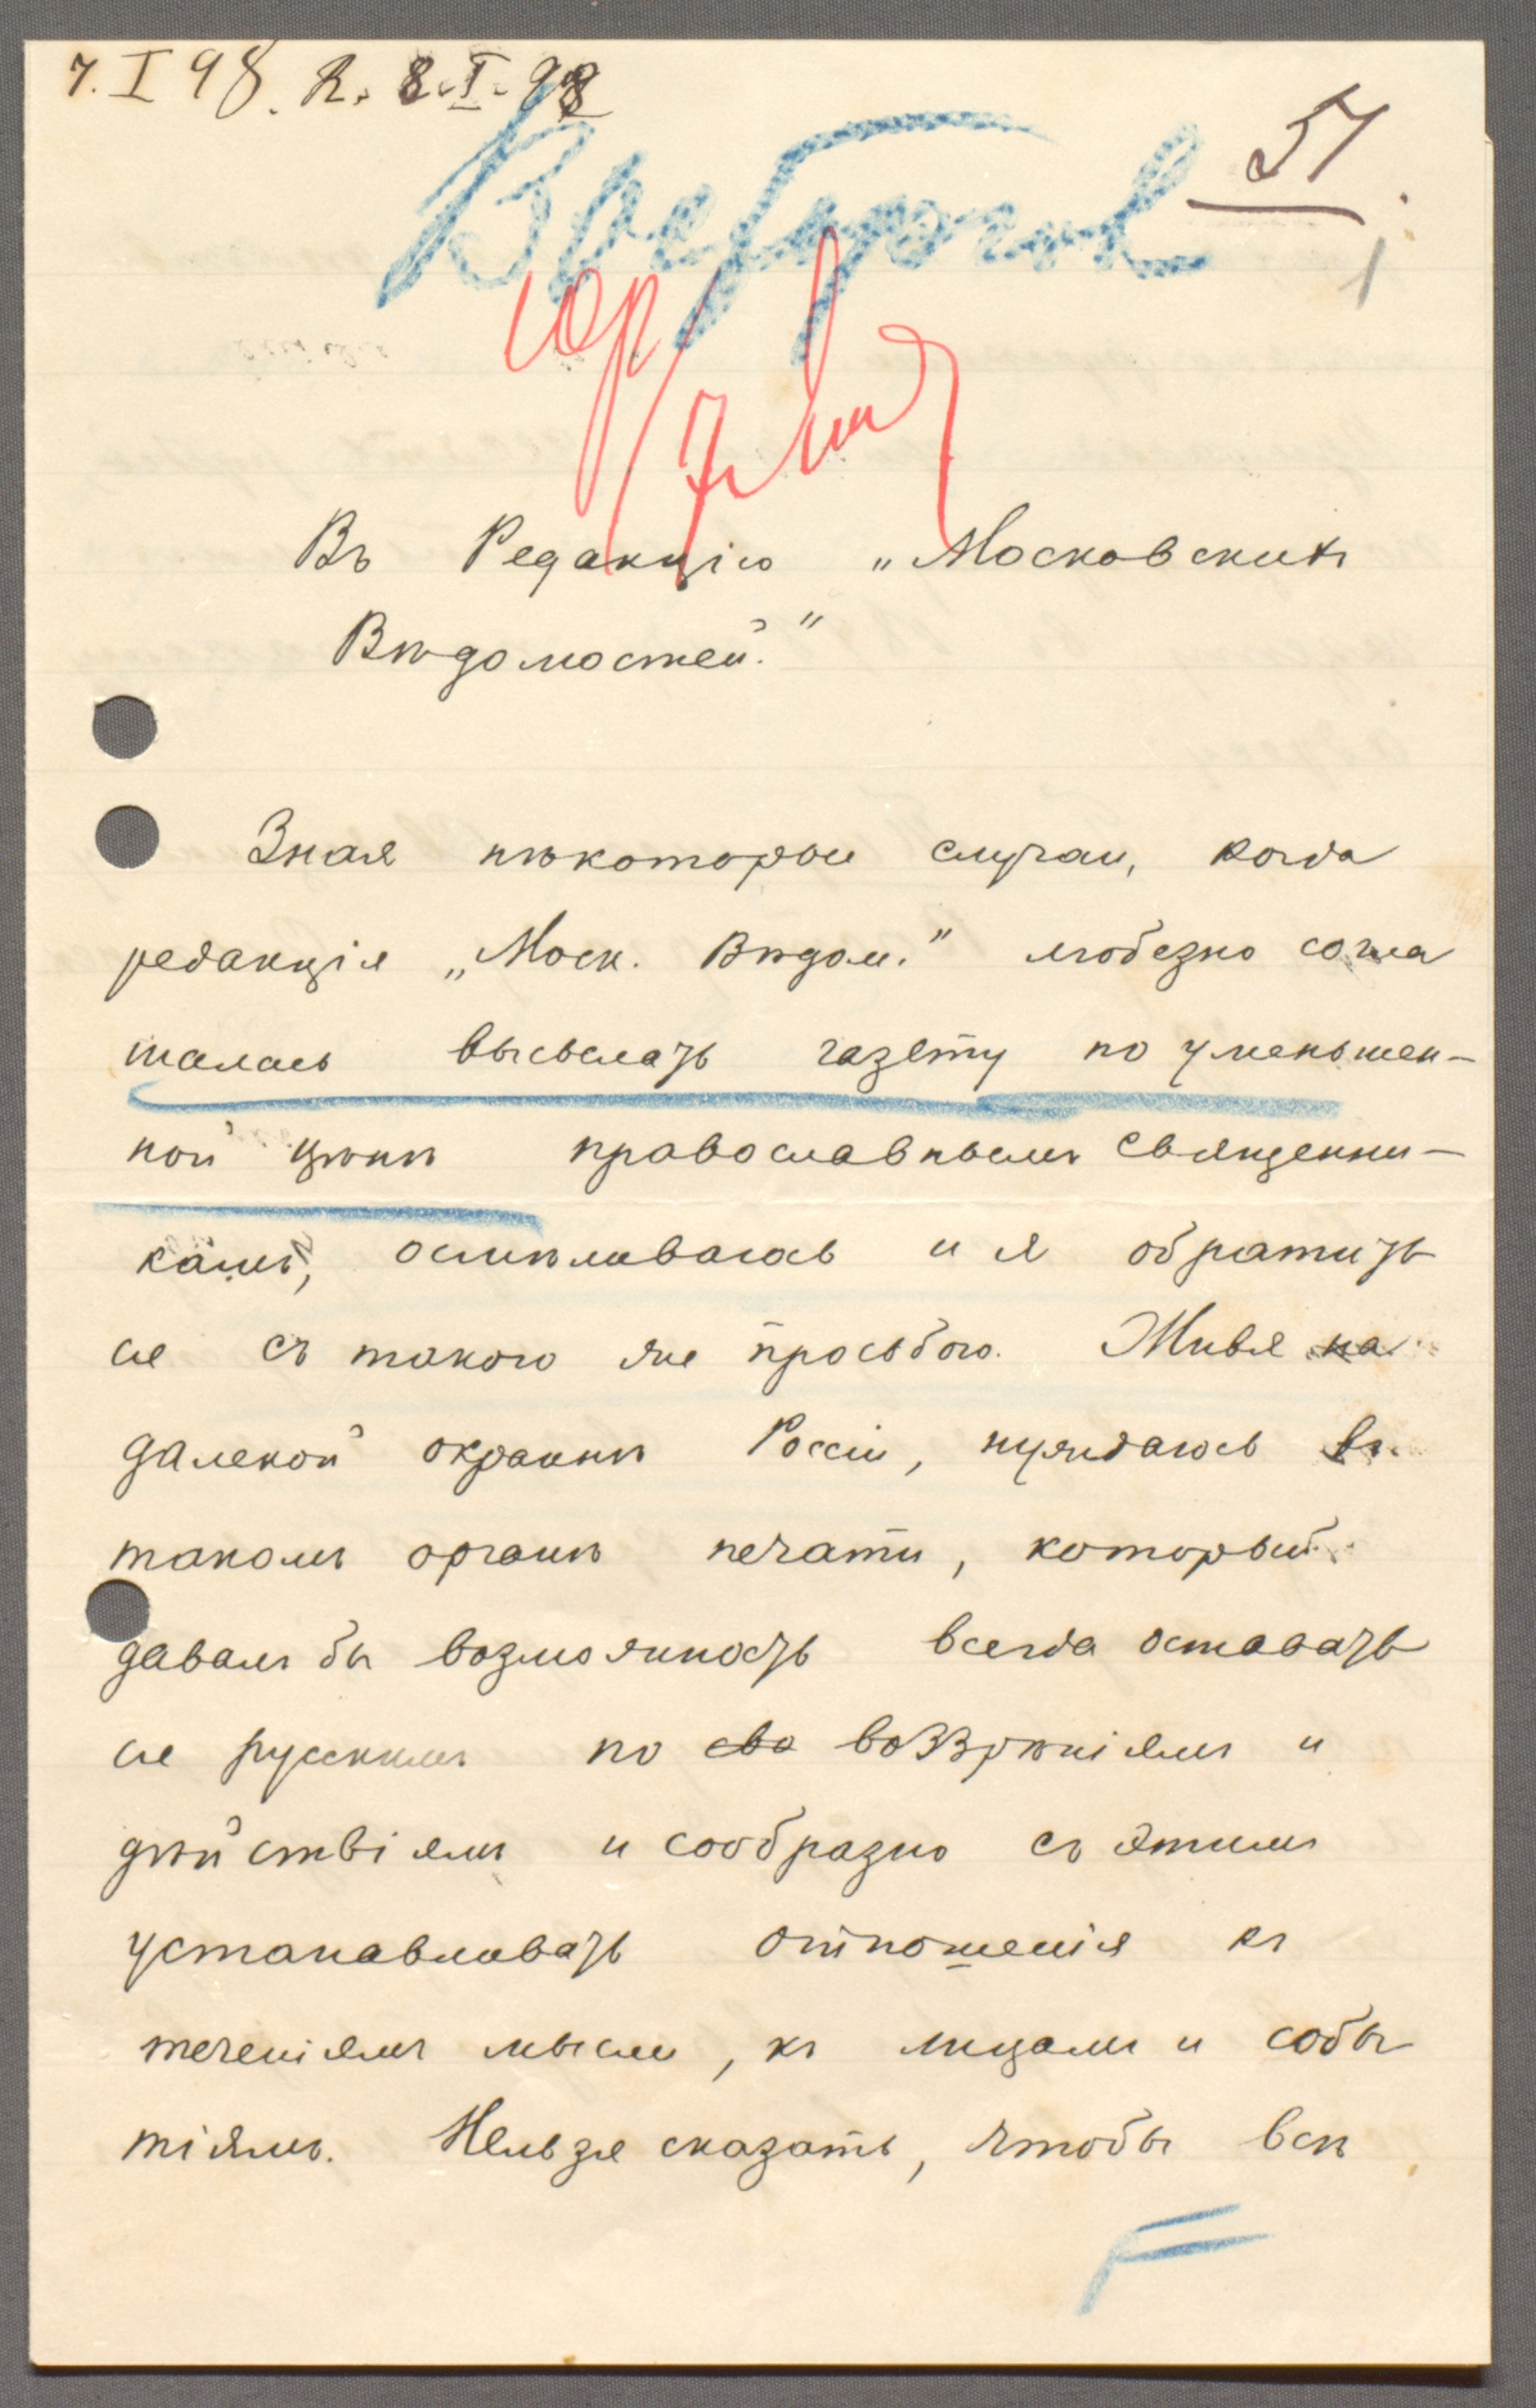 7. I 98. R. 8. I. 98
51
1
Въ Редакцію „Московскихъ
Вѣдомостей."
Зная нѣкоторые случаи, когда
редакція „Моск. Вѣдом." любезно согла
шалась высылать газету по уменьшен-
ной цѣнѣ православнымъ священни-
камъ, осмѣливаюсь и я обратить
ся съ такою же просьбою. Живя на
далекой окраинѣ Россіи, нуждаюсь въ
такомъ органѣ печати, который
давалъ бы возможность всегда оставать
ся русскимъ по сво воззрѣніямъ и
дѣйствіямъ и сообразно съ этимъ
устанавливать отношенія къ
теченіямъ мысли, къ лицамъ и собы
тіямъ. Нельзя сказать, чтобы всѣ